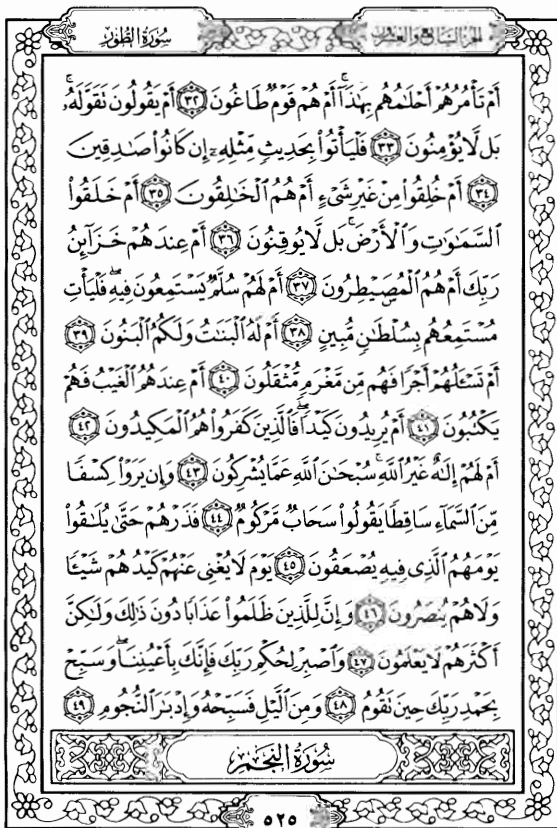 الجزء السابع والعشرون سُورَةُ الطُّورِ
أَمْ تَأْمُرُهُمْ أَحْلَٰمُهُم بِهَٰذَآ ۚ أَمْ هُمْ قَوْمٌ طَاغُونَ ٣٢ أَمْ يَقُولُونَ تَقَوَّلَهُۥ ۚ
بَل لَّا يُؤْمِنُونَ ٣٣ فَلْيَأْتُوا۟ بِحَدِيثٍ مِّثْلِهِۦٓ إِن كَانُوا۟ صَٰدِقِينَ
٣٤ أَمْ خُلِقُوا۟ مِنْ غَيْرِ شَىْءٍ أَمْ هُمُ ٱلْخَٰلِقُونَ ٣٥ أَمْ خَلَقُوا۟
ٱلسَّمَٰوَٰتِ وَٱلْأَرْضَ ۚ بَل لَّا يُوقِنُونَ ٣٦ أَمْ عِندَهُمْ خَزَآئِنُ
رَبِّكَ أَمْ هُمُ ٱلْمُصَۣيْطِرُونَ ٣٧ أَمْ لَهُمْ سُلَّمٌ يَسْتَمِعُونَ فِيهِ ۖ فَلْيَأْتِ
مُسْتَمِعُهُم بِسُلْطَٰنٍ مُّبِينٍ ٣٨ أَمْ لَهُ ٱلْبَنَٰتُ وَلَكُمُ ٱلْبَنُونَ ٣٩
أَمْ تَسْـَٔلُهُمْ أَجْرًا فَهُم مِّن مَّغْرَمٍ مُّثْقَلُونَ ٤٠ أَمْ عِندَهُمُ ٱلْغَيْبُ فَهُمْ
يَكْتُبُونَ ٤١ أَمْ يُرِيدُونَ كَيْدًا ۖ فَٱلَّذِينَ كَفَرُوا۟ هُمُ ٱلْمَكِيدُونَ ٤٢
أَمْ لَهُمْ إِلَٰهٌ غَيْرُ ٱللَّهِ ۚ سُبْحَٰنَ ٱللَّهِ عَمَّا يُشْرِكُونَ ٤٣ وَإِن يَرَوْا۟ كِسْفًا
مِّنَ ٱلسَّمَآءِ سَاقِطًا يَقُولُوا۟ سَحَابٌ مَّرْكُومٌ ٤٤ فَذَرْهُمْ حَتَّىٰ يُلَٰقُوا۟
يَوْمَهُمُ ٱلَّذِى فِيهِ يُصْعَقُونَ ٤٥ يَوْمَ لَا يُغْنِى عَنْهُمْ كَيْدُهُمْ شَيْـًٔا
وَلَا هُمْ يُنصَرُونَ ٤٦ وَإِنَّ لِلَّذِينَ ظَلَمُوا۟ عَذَابًا دُونَ ذَٰلِكَ وَلَٰكِنَّ
أَكْثَرَهُمْ لَا يَعْلَمُونَ ٤٧ وَٱصْبِرْ لِحُكْمِ رَبِّكَ فَإِنَّكَ بِأَعْيُنِنَا ۖ وَسَبِّحْ
بِحَمْدِ رَبِّكَ حِينَ تَقُومُ ٤٨ وَمِنَ ٱلَّيْلِ فَسَبِّحْهُ وَإِدْبَٰرَ ٱلنُّجُومِ ٤٩
سُورَةُ النَّجْمِ
٥٢٥